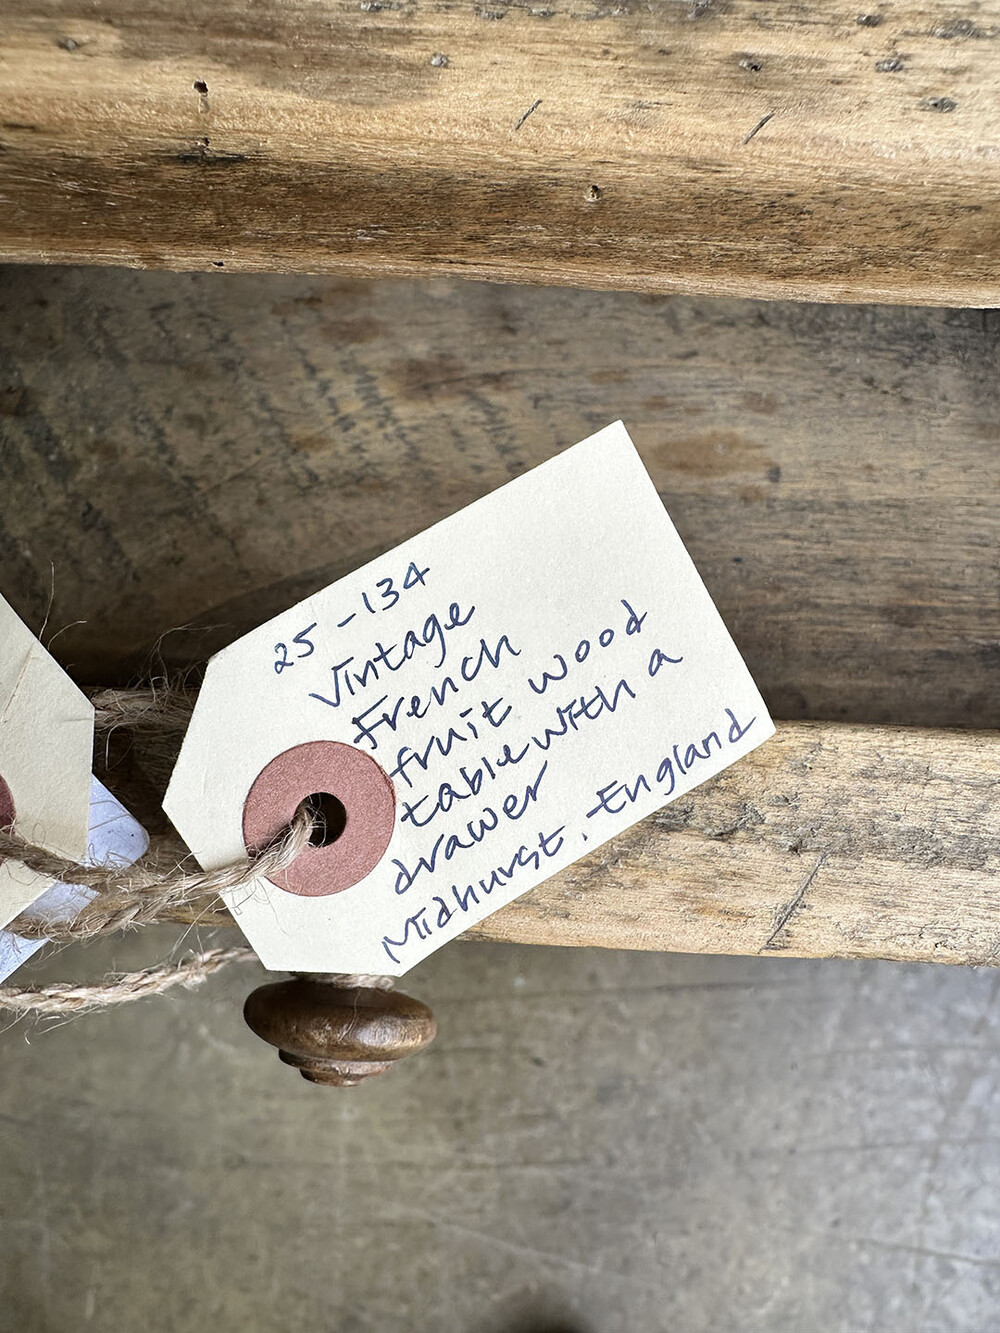 25-134
Vintage
French
fruit wood
table with a
drawer
Midhurst. England